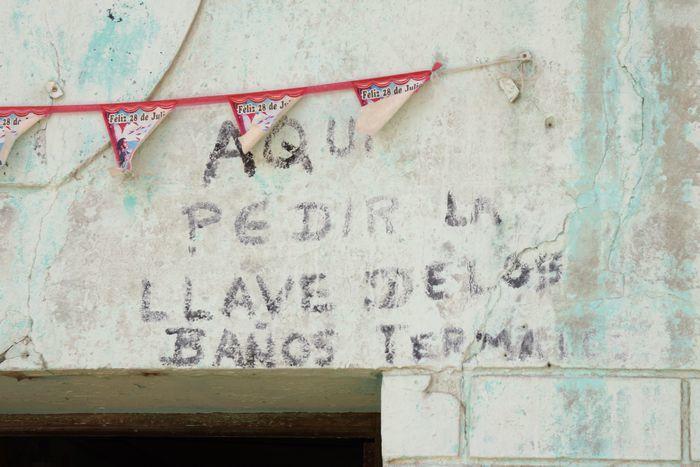 Feliz 28 de Juli
Feliz 28 de Juli
Feliz 28 de Juli
AQUI
PEDIR LA
LLAVE DE LOS
BAÑOS TERMALES